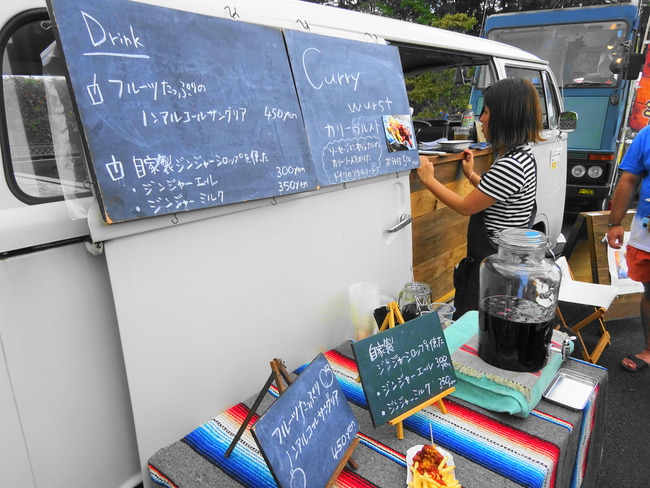 Drink
フルーツたっぷりの
ノンアルコールサングリア
450yen
自家製ジンジャーシロップを使った
・ジンジャーエール 300yen
・ジンジャーミルク 350yen
Curry
wurst
カリーヴルスト
自家製
ジンジャーシロップを使った
・ジンジャーエール
・ジンジャーミルク 350yen
フルーツたっぷり
ノンアルコールサングリア
450yen